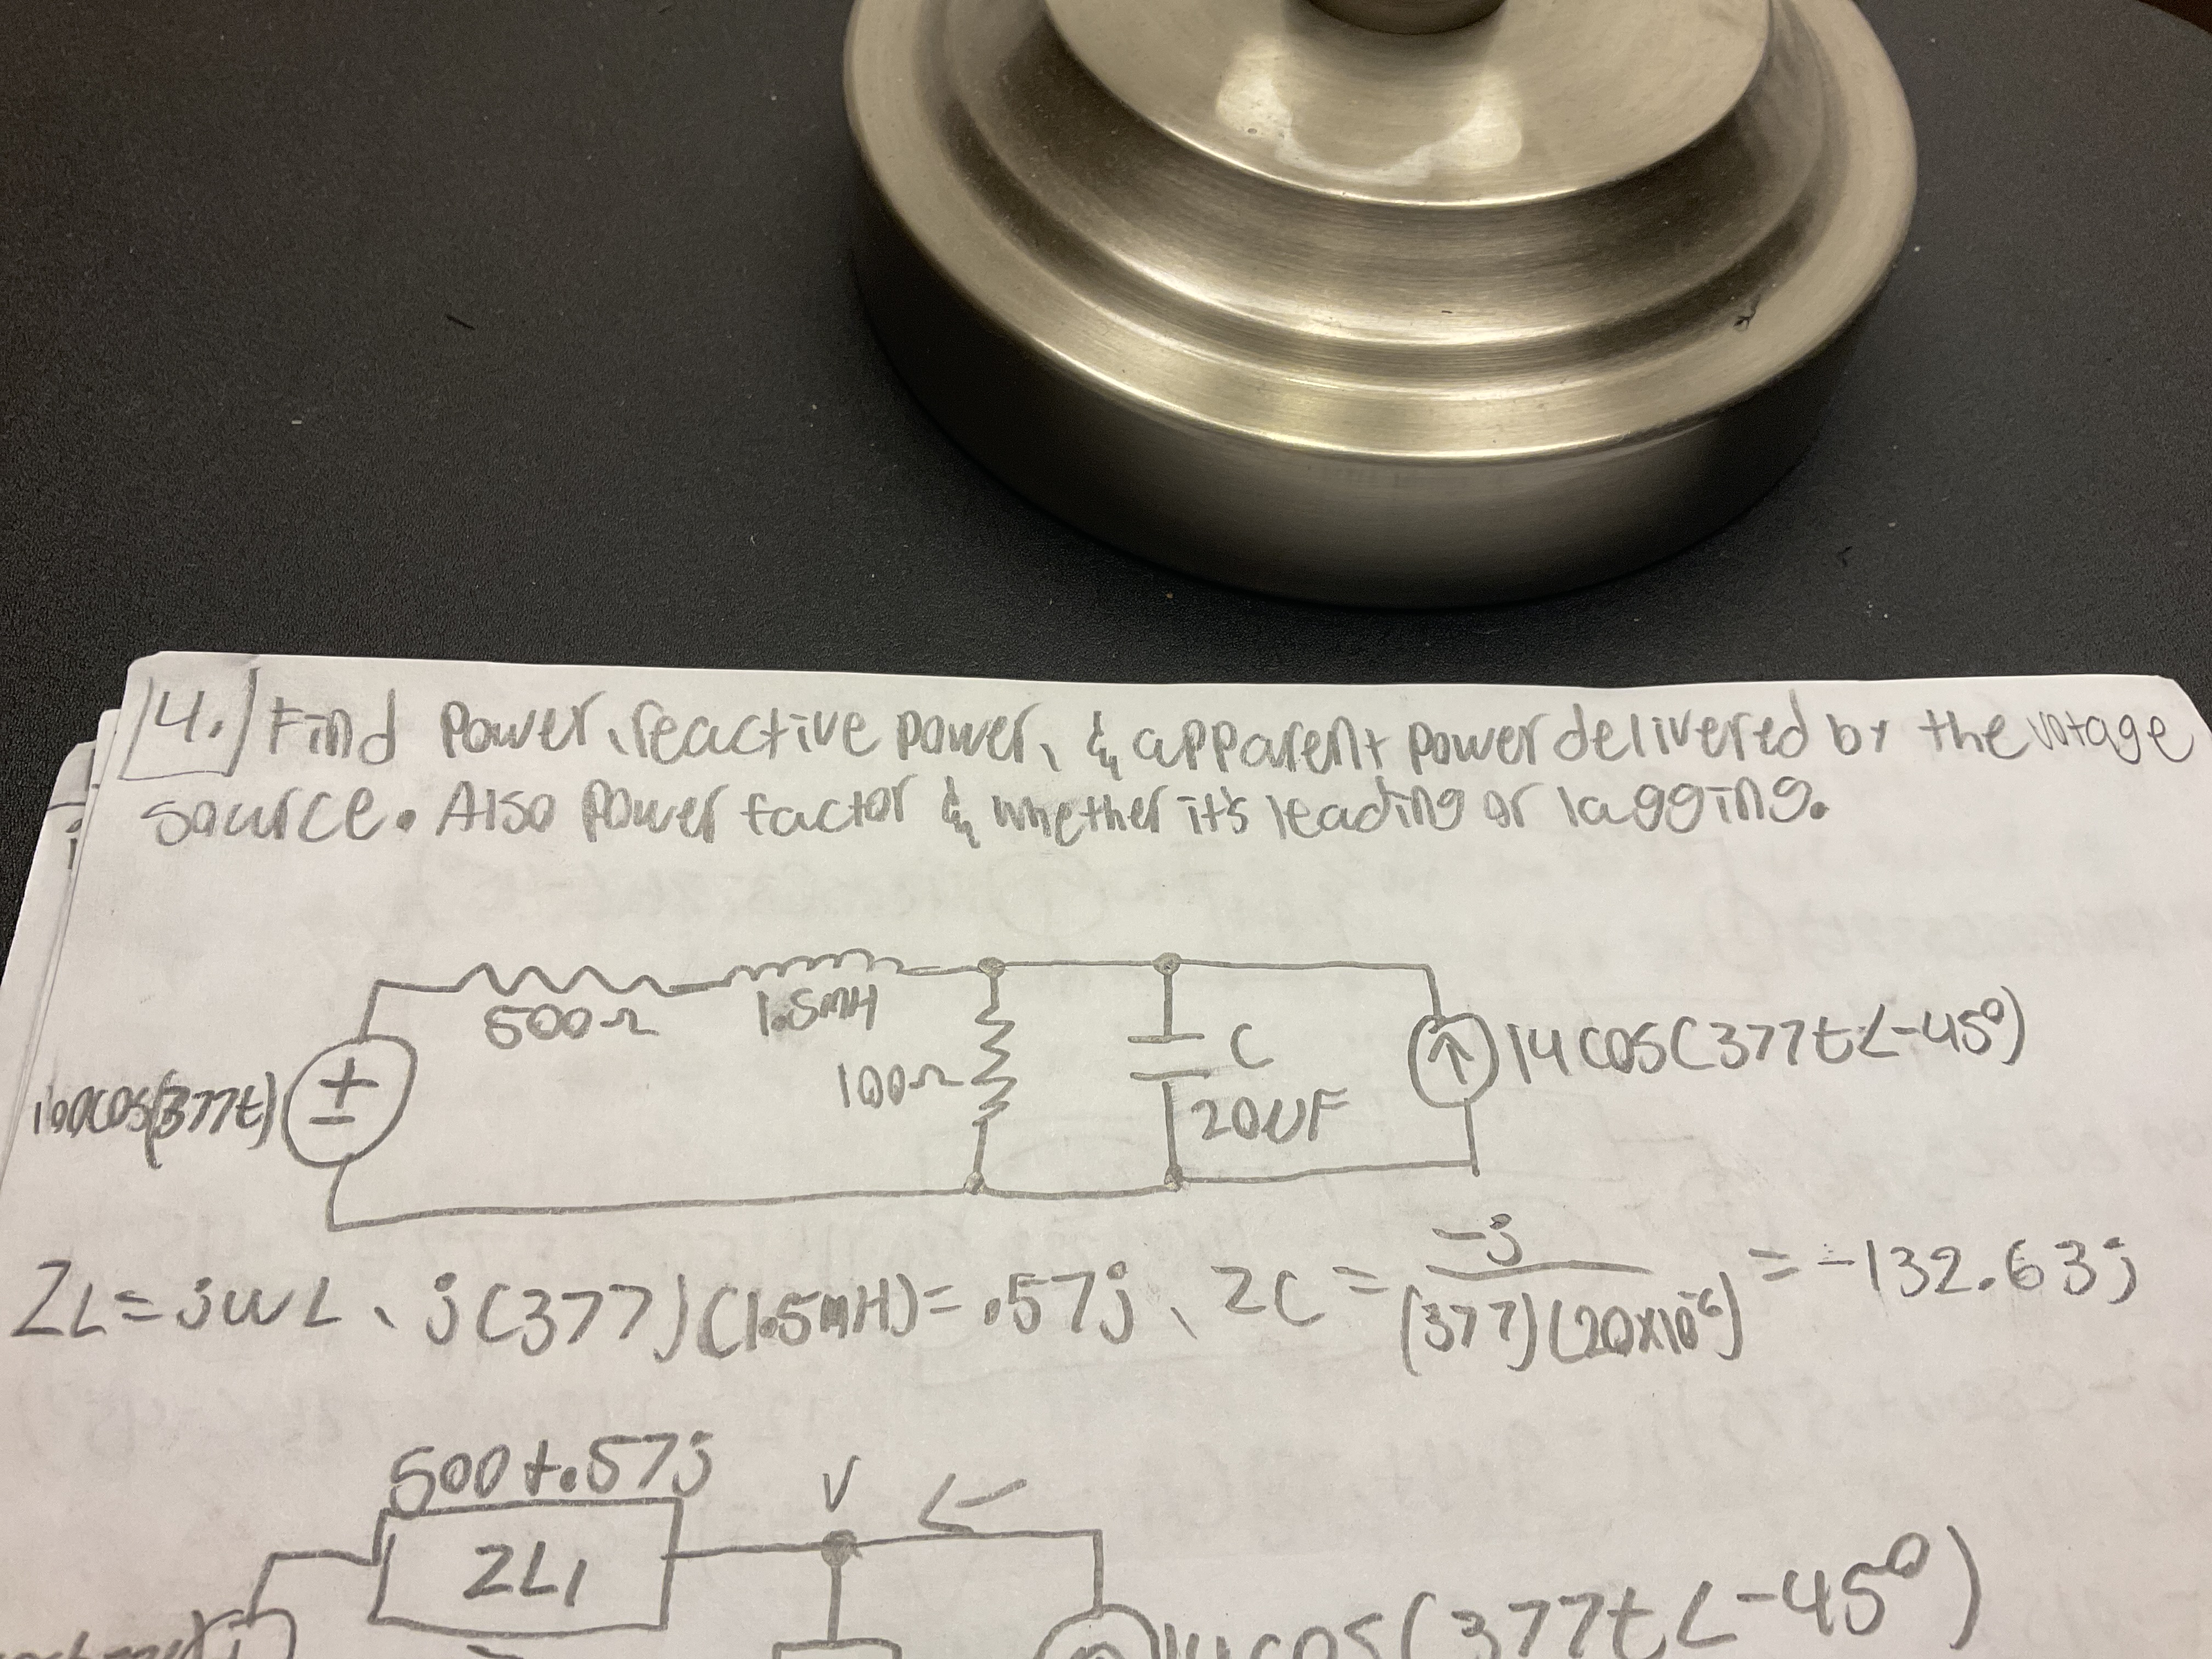 14. Find power, reactive power, & apparent power delivered by the votage
source. Also power factor & whether it's leading or lagging.
500Ω
1.5mH
100cos(377t)
+
-
100Ω
C
20UF
14cos(377t∠-45°)
ZL = jwL, j(377)(1.5mH) = .57j, ZC = -j/(377)(20x10^-6) = -132.63j
500+.57j
V
ZL1
14cos(377t∠-45°)